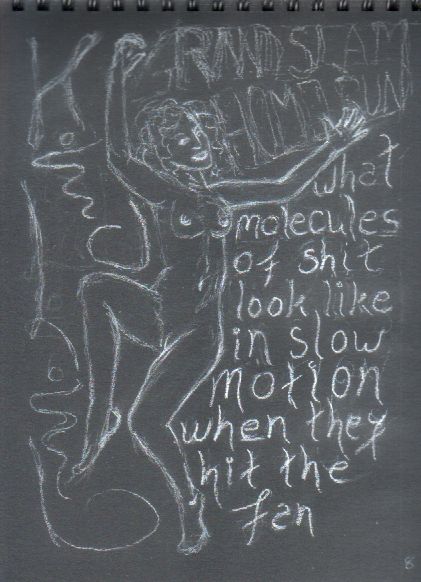 GRAND SLAM
HOME RUN
what
molecules
of shit
look like
in slow
motion
when they
hit the
fan
8